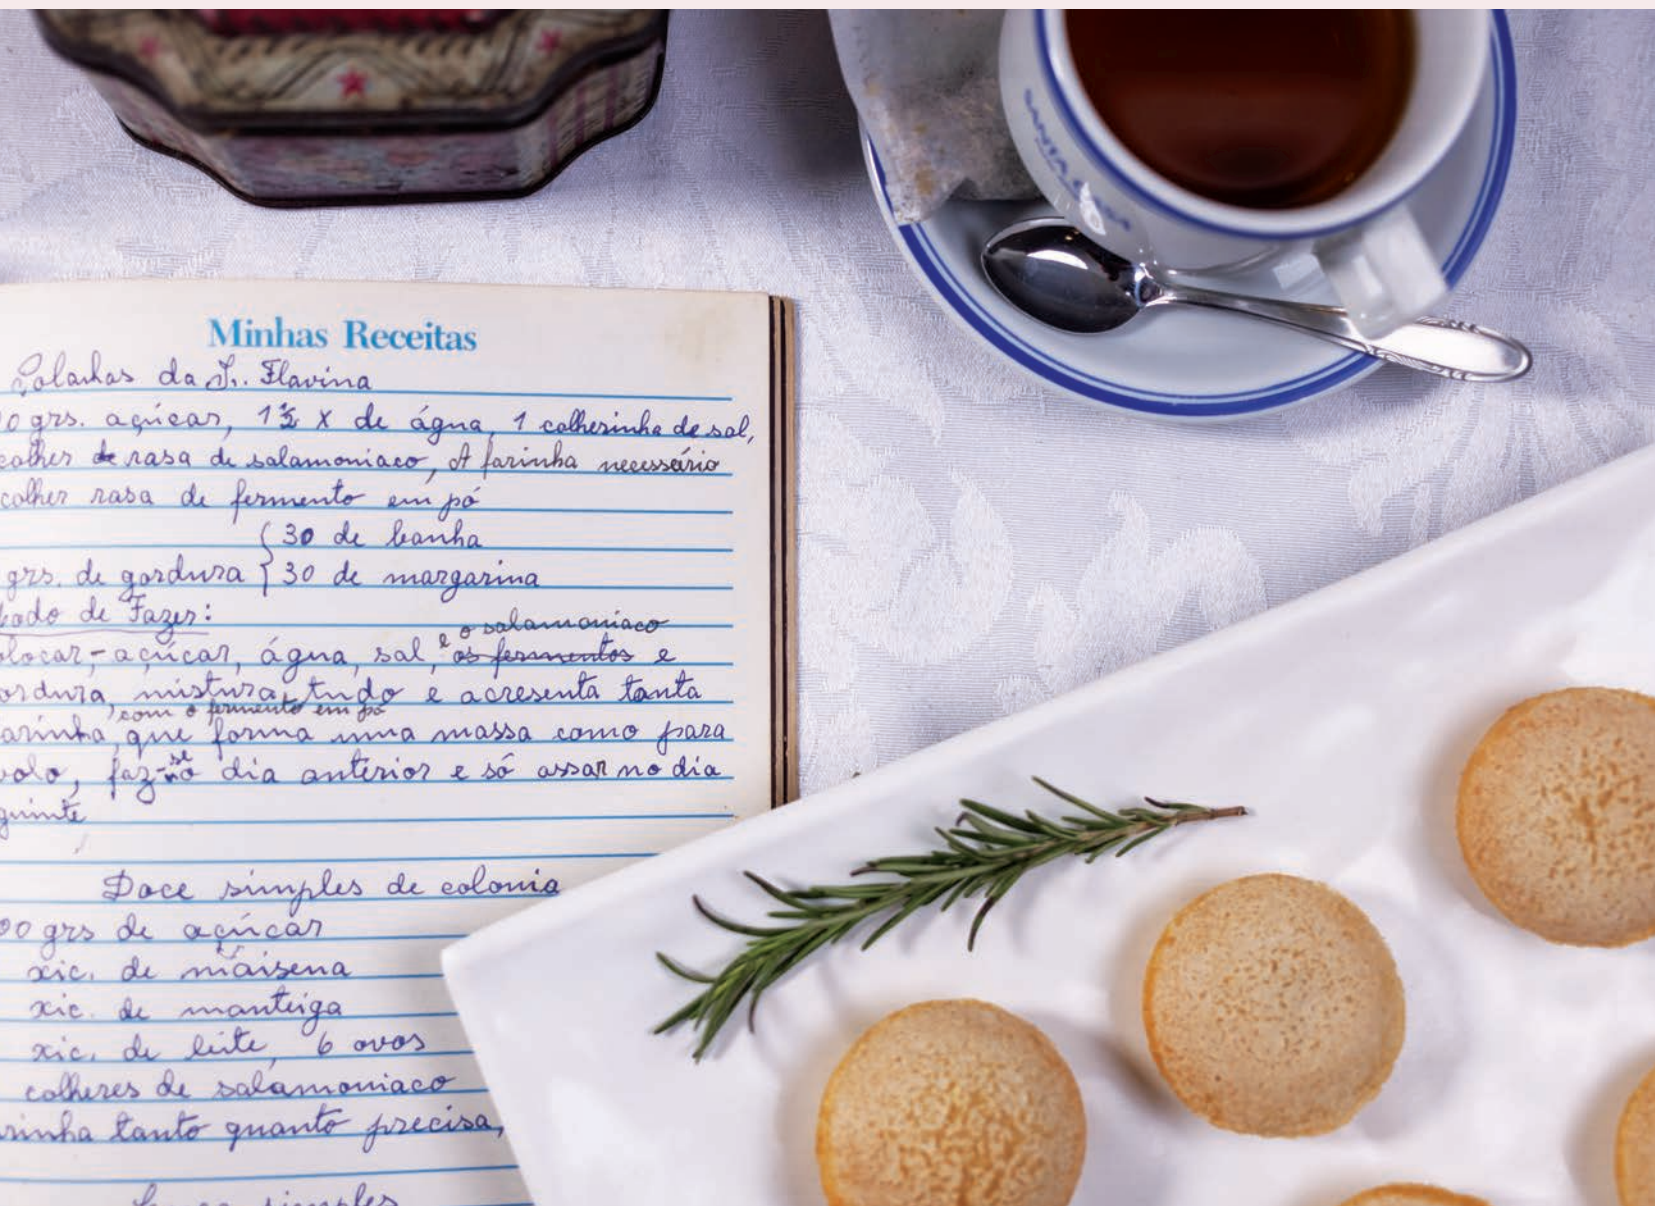 SANTA
Minhas Receitas
Bolachas da Sr. Flavina
0 grs. açúcar, 1 ½ X de água, 1 colherinha de sal,
colher de rasa de salamoniaco, A farinha necessário
colher rasa de fermento em pó
30 de banha
grs. de gordura 30 de margarina
odo de Fazer:
o salamoniaco
olocar, açúcar, água, sal, e os fermentos e
ordura, mistura tudo e acresenta tanta
com o fermento em pó
arinha, que forma uma massa como para
olo, faz-se no dia anterior e só assar no dia
guinte
Doce simples de colonia
00 grs de açúcar
xic. de maisena
xic. de manteiga
xic. de leite, 6 ovos
colheres de salamoniaco
rinha tanto quanto precisa,
simples